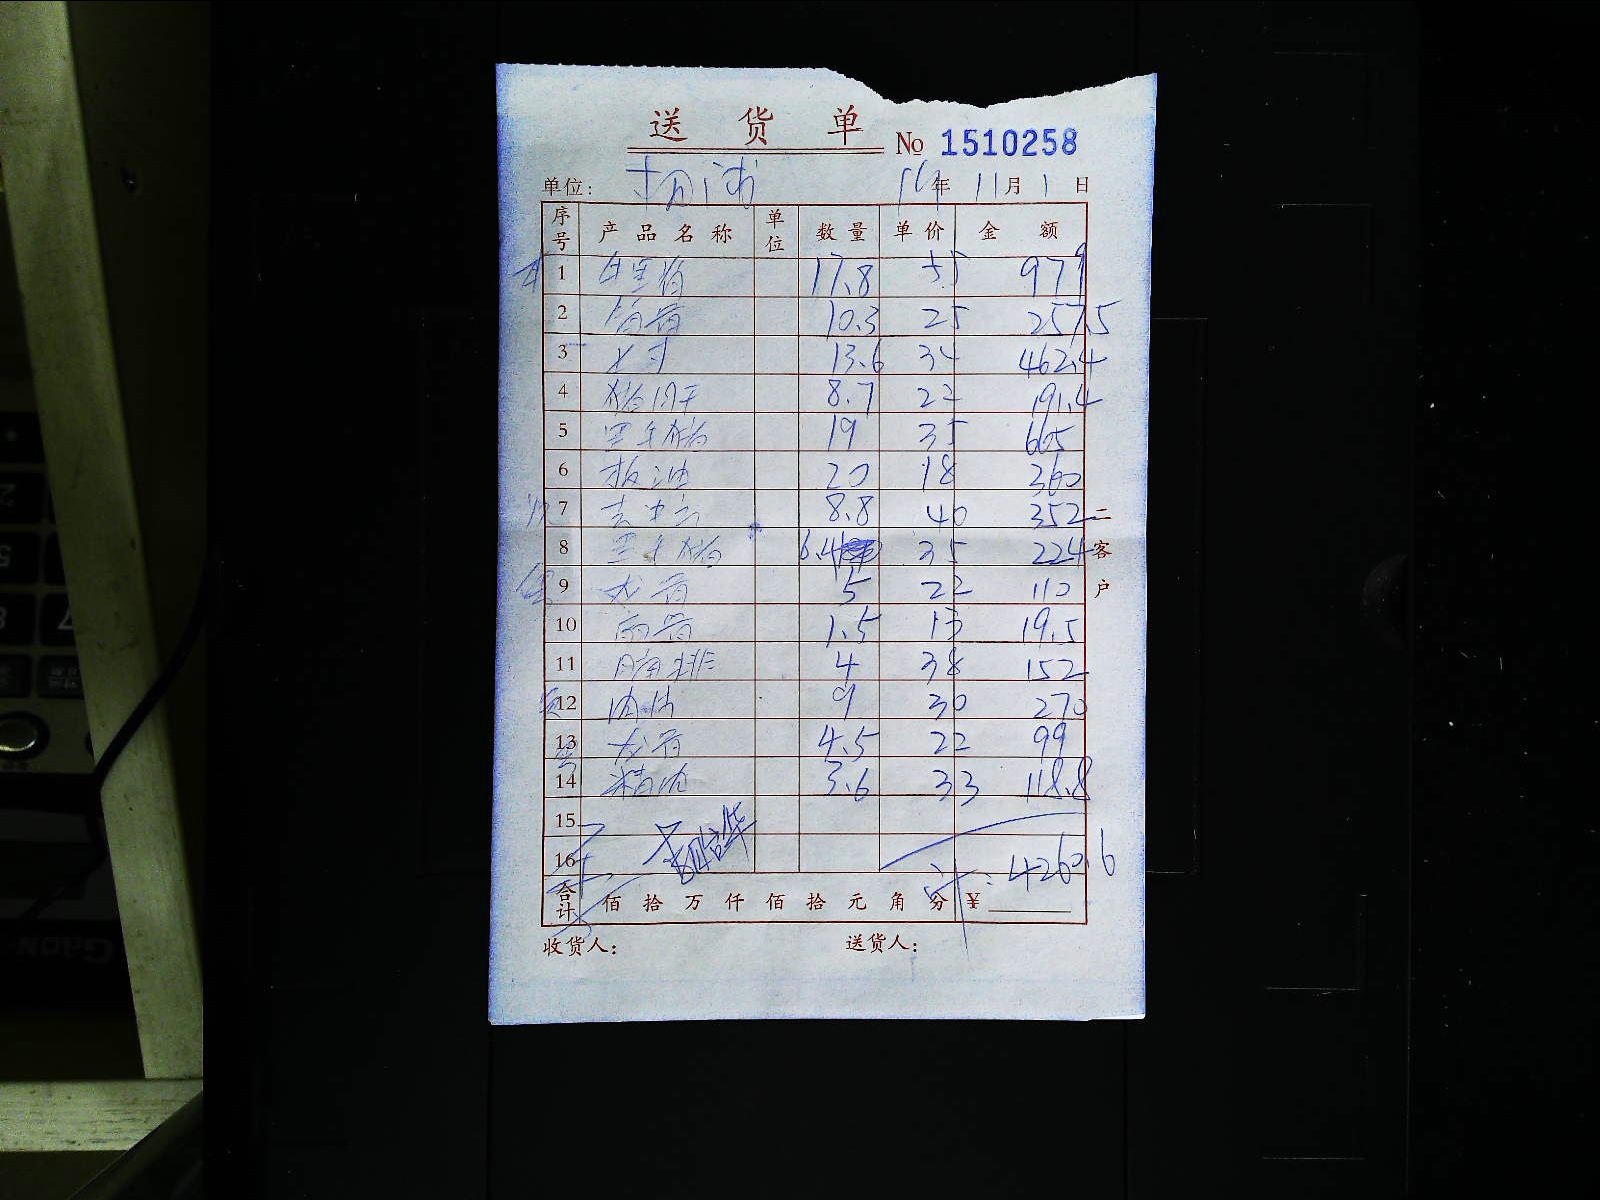 送货单 No 1510258
单位: 杨浦 16年 11月 1日
序号 产品名称 单位 数量 单价 金额
1 17.8 55 979
2 筒骨 10.3 25 257.5
3 13.6 34 462.4
4 猪肝 8.7 22 191.4
5 黑毛猪 19 35 665
6 板油 20 18 360
7 8.8 40 352
8 黑毛猪 6.4 35 224
9 龙骨 5 22 110
10 1.5 13 19.5
11 腩排 4 38 152
12 9 30 270
13 龙骨 4.5 22 99
14 精肉 3.6 33 118.8
15
16 计: 4260.6
合计 佰 拾 万 仟 佰 拾 元 角 分 ¥
收货人: 送货人:
二客户